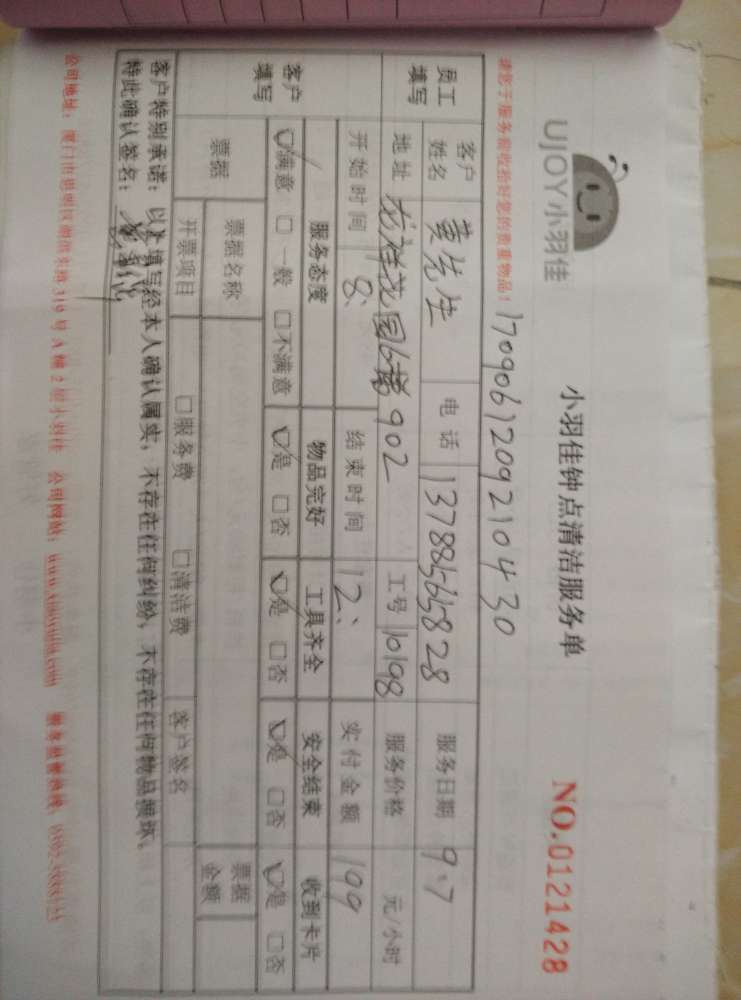 UJOY小羽佳
小羽佳钟点清洁服务单
NO.0121428
请您于服务前收拾好您的贵重物品!
1709061209210430
员工填写
客户姓名 黄先生 电话 13788565828 服务日期 9.7
地址 龙祥花园6幢902 工号 10198 服务价格 元/小时
开始时间 8: 结束时间 12: 实付金额 199
客户填写
服务态度 物品完好 工具齐全 安全结束 收到卡片
满意 □一般 □不满意 是 □否 是 □否 是 □否 是 □否
票据 票据名称 票据金额
开票项目 □服务费 □清洁费 客户签名
客户特别承诺:以上填写经本人确认属实,不存在任何纠纷,不存在任何物品损坏,
特此确认签名:
公司地址:厦门市思明区 319号A幢2层小羽佳 公司网站:www.xiaoyujia.com